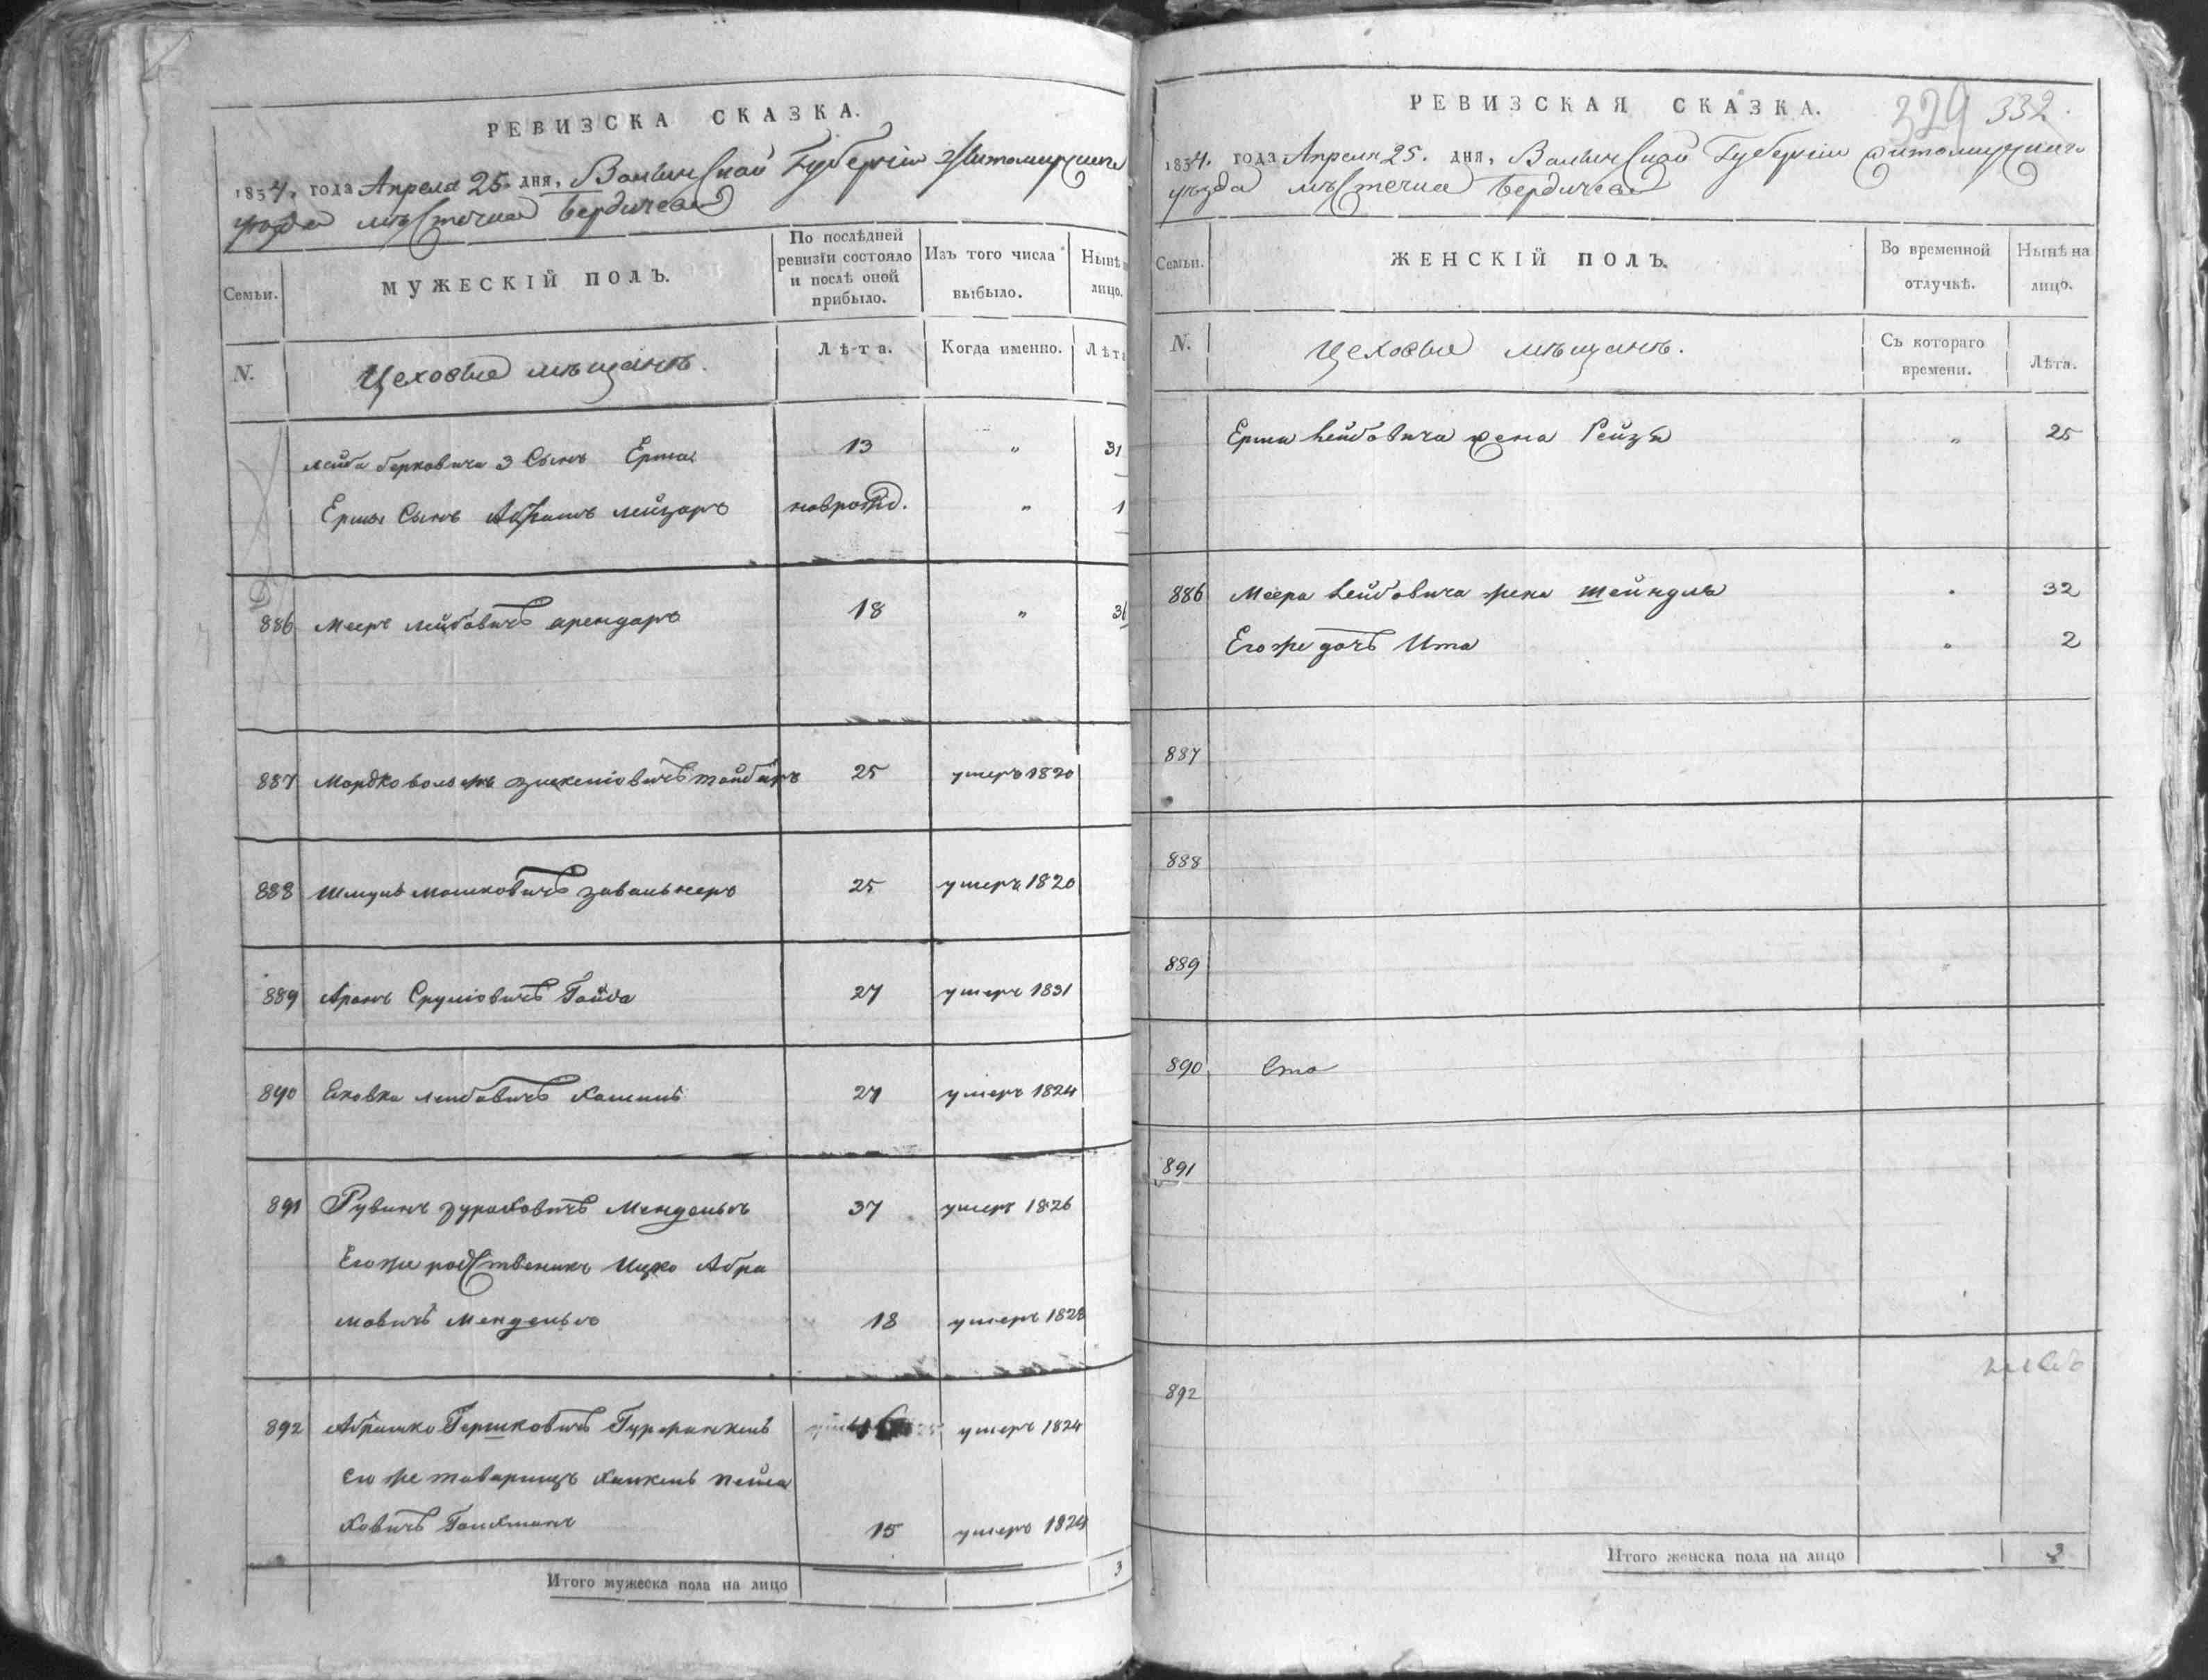 РЕВИЗСКА СКАЗКА.
1834. года Апреля 25. дня, Волынской Губерніи Житомирскаго
уѣзда мѣстечка Бердичева
Семьи.
МУЖЕСКІЙ ПОЛЪ.
По послѣдней ревизіи состояло и послѣ оной прибыло.
Изъ того числа выбыло.
Нынѣ
лицо.
N.
Цеховые мѣщанъ.
Лѣта.
Когда именно.
Лѣта
Лейба Берковича 3 Сынъ Ерша 13 " 31
Ерши Сынъ Абрамъ Лейзоръ новрожд. " 1
886 Мееръ Лейбовичъ арендаръ 18 " 36
887 Мордко Вольфъ 25 умеръ 1820
888 Шмуль Мошковичъ 25 умеръ 1820
889 Аронъ Сруліовичъ Гойда 27 умеръ 1831
890 Лейбовичъ 27 умеръ 1824
891 Рувинъ Мендельсъ 37 умеръ 1826
Его же родственикъ Ицко Абра
мовичъ Мендельсъ 18 умеръ 1828
892 Абрашко Гершковичъ умеръ 1824
его же товарищъ Пейса
ховичъ 15 умеръ 1824
Итого мужеска пола на лицо 3
РЕВИЗСКАЯ СКАЗКА.
329 332.
1834. года Апреля 25. дня, Волынской Губерніи Житомирскаго
уѣзда мѣстечка Бердичева
Семьи.
ЖЕНСКІЙ ПОЛЪ.
Во временной отлучкѣ.
Нынѣ на лицо.
N.
Цеховые мѣщанъ.
Съ котораго времени.
Лѣта.
Ерши Лейбовича жена Рейзя " 25
886 Меера Лейбовича жена Шейндля " 32
Его же дочь Ита " 2
887
888
889
890
891
892
Итого женска пола на лицо 3